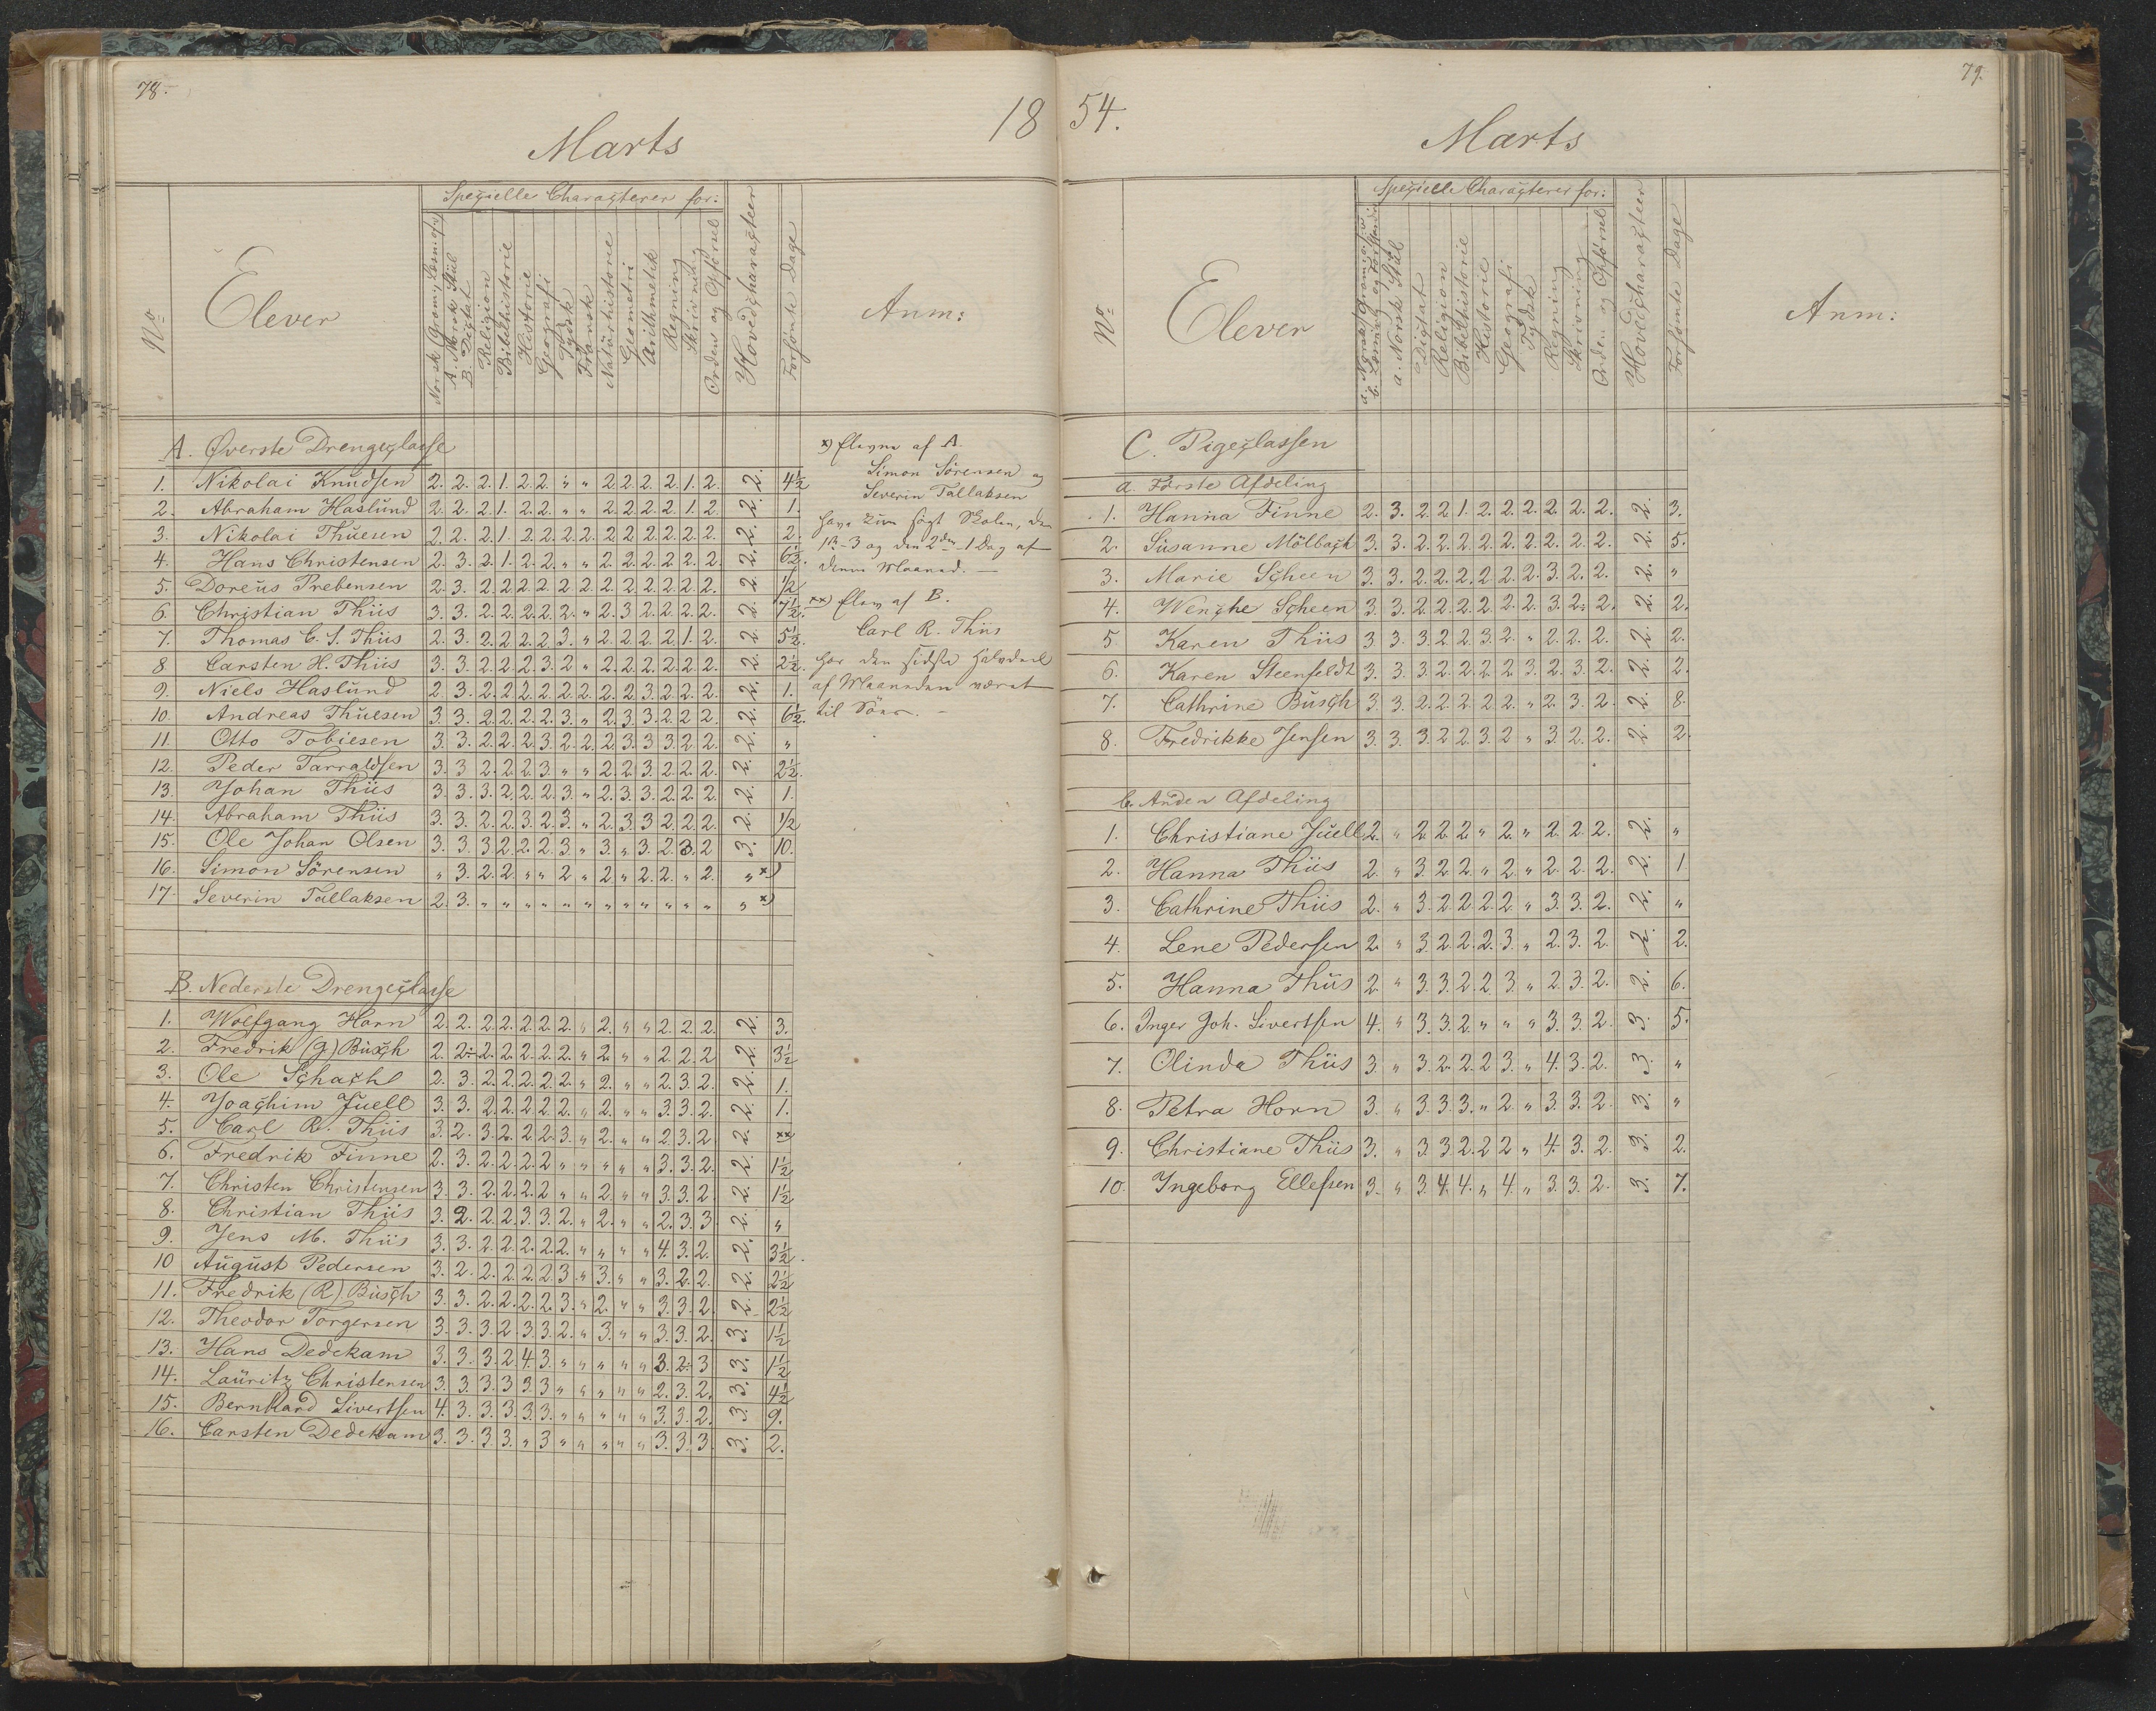 78.
18
Marts
Nº
Elever
Specielle Characterer for:
Norsk Gram:, Læsn: osv
A. Norsk Stiil
B. Dictat
Religion
Bibelhistorie
Historie
Geografi
Tydsk
Fransk
Naturhistorie
Geometri
Arithmetik
Regning
Skrivning
Orden og Opførsel
Hovedcharacteer
Forsømte Dage
Anm:
A. Øverste Drengeclasse
1. Nikolai Knudsen 2. 2. 2. 1. 2. 2. " " 2. 2. 2. 2. 1. 2. 2. 4½
2. Abraham Haslund 2. 2. 2. 1. 2. 2. " " 2. 2. 2. 2. 1. 2. 2. 1.
3. Nikolai Thuesen 2. 2. 2. 1. 2. 2. 2. 2. 2. 2. 2. 2. 2. 2. 2. 2.
4. Hans Christensen 2. 3. 2. 1. 2. 2. " " 2. 2. 2. 2. 2. 2. 2. 6½.
5. Doreus Prebensen 2. 3. 2. 2. 2. 2. 2. 2. 2. 2. 2. 2. 2. 2. 2. ½
6. Christian Thiis 3. 3. 2. 2. 2. 2. 2. " 2. 3. 2. 2. 2. 2. 2. 7½.
7. Thomas C. S. Thiis 2. 3. 2. 2. 2. 2. 3. " 2. 2. 2. 2. 1. 2. 2. 5½.
8. Carsten H. Thiis 3. 3. 2. 2. 2. 3. 2 " 2. 2. 2. 2. 2. 2. 2. 2½.
9. Niels Haslund 2. 3. 2. 2. 2. 2. 2. 2. 2. 2. 3. 2. 2. 2. 2. 1.
10. Andreas Thuesen 3. 3. 2. 2. 2. 2. 3. " 2. 3. 3. 2. 2. 2. 2. 6½.
11. Otto Tobiesen 3. 3. 2. 2. 2. 3. 2. 2. 2. 3. 3. 3. 2. 2. 2. "
12. Peder Tarraldsen 3. 3 2. 2. 2. 3. " " 2. 2. 3. 2. 2. 2. 2. 2½.
13. Johan Thiis 3. 3. 3. 2. 2. 2. 3. " 2. 3. 3. 2. 2. 2. 2. 1.
14. Abraham Thiis 3. 3. 2. 2. 3. 2. 3. " 2. 3. 3 2. 2. 2. 2. ½
15. Ole Johan Olsen 3. 3. 3. 2. 2. 2. 3. " 3. " 3. 2. 3. 2 3. 10.
16. Simon Sörensen " 3. 2. 2. " " 2. " 2. " 2. 2. " 2. " x)
17. Severin Tallaksen 2. 3. " " " " " " " " " " " " " x)
x) Eleverne af A.
Simon Sörensen og
Severin Tallaksen
have kun søgt Skolen, den
1ste 3 og den 2den 1 Dag af
denne Maaned. —
xx) Elev af B.
Carl R. Thiis
har den sidste Halvdeel
af Maaneden været
til Søes. —
B. Nederste Drengeclasse
1. Wolfgang Horn 2. 2. 2. 2. 2. 2. 2. " 2. " " 2. 2. 2. 2. 3.
2. Fredrik (G) Busch 2. 2. 2. 2. 2. 2. 2. " 2. " " 2. 2. 2 2. 3½
3. Ole Schacht 2. 3. 2. 2. 2. 2. 2. " 2. " " 2. 3. 2. 2. 1.
4. Joachim Juell 3. 3. 2. 2. 2. 2. 2. " 2. " " 3. 3. 2. 2. 1.
5. Carl R. Thiis 3. 2. 3. 2. 2. 2. 3. " 2. " " 2. 3. 2. 2. xx
6. Fredrik Finne 2. 3. 2. 2. 2. 2 " " " " " 3. 3. 2. 2. 1½
7. Christen Christensen 3. 3. 2. 2. 2. 2 " " 2. " " 3. 3. 2. 2. 1½
8. Christian Thiis 3. 2. 2. 2. 3. 3. 2. " 2. " " 2. 3. 3. 2. "
9. Jens M. Thiis 3. 3. 2. 2. 2. 2. 2. " " " " 4. 3. 2. 2. 3½.
10 August Pedersen 3. 2. 2. 2. 2. 2. 3. " 3. " " 3. 2. 2. 2. 2½
11. Fredrik (R) Busch 3. 3. 2. 2. 2. 2. 3. " 2. " " 3. 3. 2. 2. 2½
12. Theodor Torgersen 3. 3. 3. 2. 3. 3. 2. " 3. " " 3. 3. 2. 3. 1½
13. Hans Dedekam 3. 3. 3. 2. 4. 3. " " " " " 3. 2. 3 3. 1½
14. Lauritz Christensen 3. 3. 3. 3 3. 3 " " " " " 2. 3. 2. 3. 4½
15. Bernhard Sivertsen 4. 3. 3. 3. 3. 3. " " " " " 3. 3. 2. 3. 9.
16. Carsten Dedekam 3. 3. 3. 3. " 3 " " " " " 3. 3. 3. 3. 2.
54.
79.
Marts
Nº
Elever
Specielle Characterer for:
a. Norsk Gram: osv
b. Læsning og Forstandsø
a. Norsk Stiil
Dictat
Religion
Bibelhistorie
Historie
Geografi
Tydsk
Regning
Skrivning
Orden og Opførsel
Hovedcharacteer
Forsømte Dage
Anm:
C. Pigeclassen
a. Første Afdeling
1. Hanna Finne 2. 3. 2. 2. 1. 2. 2. 2. 2. 2. 2. 2. 3.
2. Susanne Mölbach 3. 3. 2. 2. 2. 2. 2. 2. 2. 2. 2. 2. 5.
3. Marie Scheen 3. 3. 2. 2. 2. 2. 2. 2. 3. 2. 2. 2. "
4. Wenche Scheen 3. 3. 2. 2. 2. 2. 2. 2. 3. 2. 2. 2. 2.
5. Karen Thiis 3 3. 3. 2. 2. 3. 2. " 2. 2. 2. 2. 2.
6. Karen Steenfeldt 3. 3. 3. 2. 2. 2. 2. 3. 2. 3. 2. 2. 2.
7. Cathrine Busch 3. 3. 2. 2. 2. 2. 2. " 2. 3. 2. 2. 8.
8. Fredrikke Jensen 3. 3. 3. 2. 2. 3. 2 " 3. 2. 2. 2. 2.
b. Anden Afdeling
1. Christiane Juell 2. " 2. 2. 2. " 2. " 2. 2. 2. 2. "
2. Hanna Thiis 2. " 3. 2. 2. " 2. " 2. 2. 2. 2. 1
3. Cathrine Thiis 2. " 3. 2. 2. 2. 2. " 3. 3. 2. 2. "
4. Lene Pedersen 2. " 3. 2. 2. 2. 3. " 2. 3. 2. 2. 2.
5. Hanna Thiis 2. " 3. 3. 2. 2. 3. " 2. 3. 2. 2. 6.
6. Inger Joh. Sivertsen 4. " 3. 3. 2. " " " 3. 3. 2. 3. 5.
7. Olinda Thiis 3. " 3. 2. 2. 2. 3. " 4. 3. 2. 3. "
8. Petra Horn 3. " 3. 3. 3. " 2. " 3. 3. 2. 3. "
9. Christiane Thiis 3. " 3. 3. 2. 2. 2 " 4. 3. 2. 3. 2.
10. Ingeborg Ellefsen 3. " 3. 4. 4. " 4. " 3. 3. 2. 3. 7.